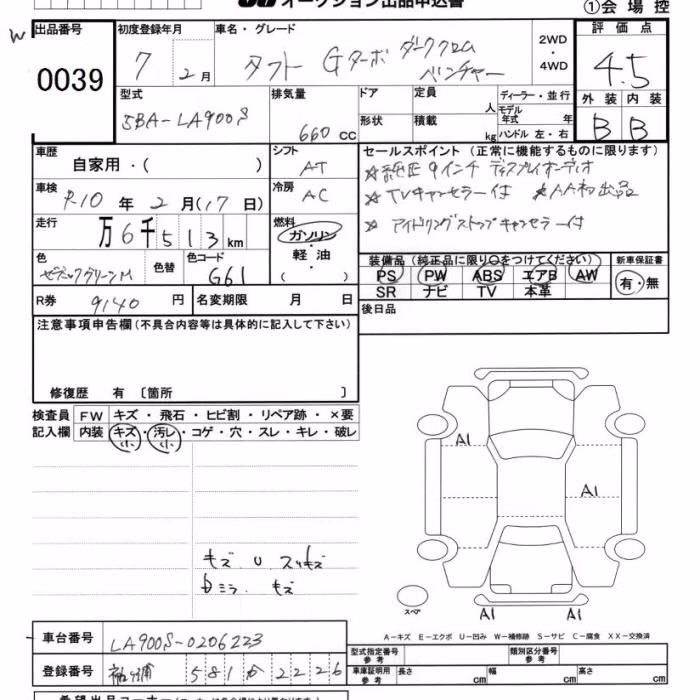 オークション出品申込書
①会場控
W
出品番号
0039
初度登録年月
7 2月
車名・グレード
タフト Gターボ ダーククロム
ベンチャー
2WD
・
4WD
評価点
4.5
外装 内装
B B
型式
5BA-LA900S
排気量
660 CC
ドア
形状
定員
人
積載
kg
ディーラー・並行
モデル
年式 年
ハンドル 左・右
車歴
自家用・( )
シフト
AT
セールスポイント (正常に機能するものに限ります)
☆純正9インチディスプレイオーディオ
☆TVキャンセラー付 ☆AA初出品
☆アイドリングストップキャンセラー付
車検
R10 年 2 月(17 日)
冷房
AC
走行
万6千513km
燃料
ガソリン
・
軽油
( )
色
色替
色コード
G61
装備品 (純正品に限り○をつけてください)
新車保証書
PS PW ABS エアB AW
SR ナビ TV 本革
有・無
R券 9140 円
名変期限 月 日
後日品
注意事項申告欄(不具合内容等は具体的に記入して下さい)
修復歴 有 〔箇所 〕
検査員
記入欄
FW キズ・飛石・ヒビ割・リペア跡・×要
内装 キズ・汚レ・コゲ・穴・スレ・キレ・破レ
小 小
キズ U スリキズ
ミラ キズ
A1
A1
A1 A1
スペア
A-キズ E-エクボ U-凹み W-補修跡 S-サビ C-腐食 XX-交換済
車台番号 LA900S-0206223
登録番号 581 か 2226
型式指定番号
参考
類別区分番号
参考
車庫証明用
参考
長さ cm 幅 cm 高さ cm